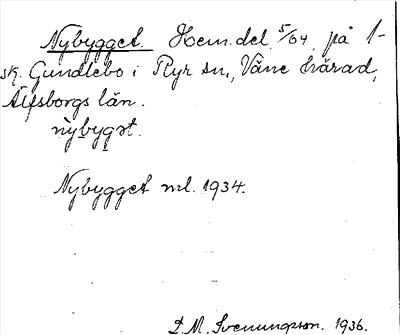 Nybygget. Hem.del 5/64 på 1-
sk. Gundlebo i Ryr sn., Väne härad,
Älfsborgs län.
nybygət.
Nybygget ml. 1934.
D. M. Svenungsson. 1936.